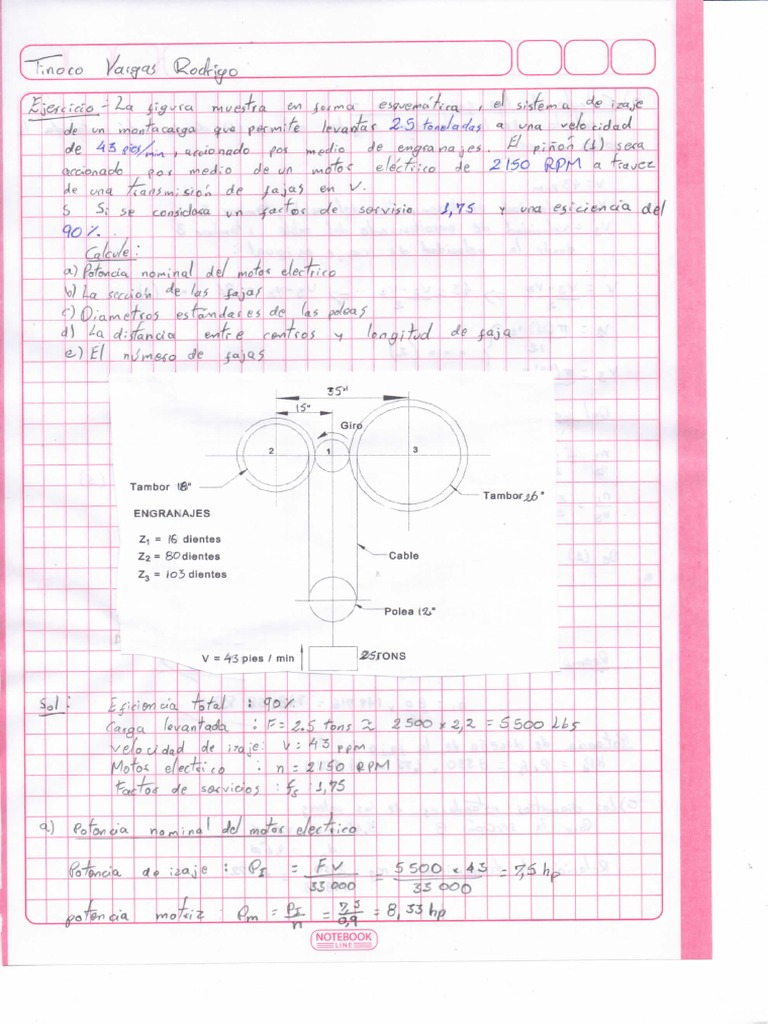 Tinoco Vargas Rodrigo
Ejercicio - La figura muestra en forma esquemática, el sistema de izaje
de un montacarga que permite levantar 2.5 toneladas a una velocidad
de 43 pies/min, accionado por medio de engranajes. El piñón (1) sera
accionado por medio de un motor eléctrico de 2150 RPM a travez
de una transmisión de fajas en V.
S Si se considera un factor de servisio 1,75 y una esiciencia del
90%.
Calcule:
a) Potencia nominal del motor electrico
b) La sección de las fajas
c) Diametros estándares de las poleas
d) La distancia entre centros y longitud de faja
e) El número de fajas
35"
15"
Giro
2 1 3
Tambor 18"
Tambor 26"
ENGRANAJES
Z1 = 16 dientes
Z2 = 80 dientes
Z3 = 103 dientes
Cable
Polea 12"
V = 43 pies / min
25TONS
Sol: Eficiencia total : 90%
Carga levantada : F = 2.5 tons ≈ 2500 x 2,2 = 5500 Lbs
Velocidad de izaje: V = 43 ppm
Motor electrico : n = 2150 RPM
Factor de servicios : fs : 1,75
a) Potencia nominal del motor electrico
Potencia de izaje : PI = F.V / 33 000 = 5500 x 43 / 33 000 = 7,5 hp
potencia motriz : Pm = PI / n = 7,5 / 0,9 = 8,33 hp
NOTEBOOK
LINE